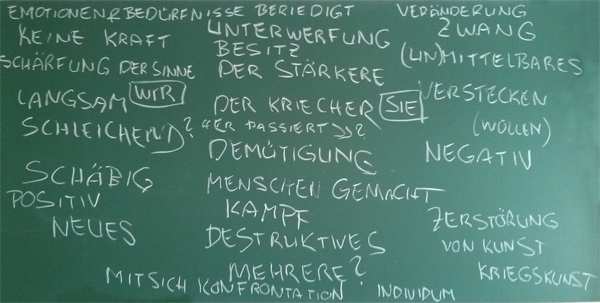 EMOTIONEN & BEDÜRFNISSE BERIEDIGT
KEINE KRAFT
SCHÄRFUNG DER SINNE
LANGSAM WIR
SCHLEICHEND?
SCHÄBIG
POSITIV
NEUES
UNTERWERFUNG
BESITZ
DER STÄRKERE
DER KRIECHER SIE
"ER PASSIERT"?
DEMÜTIGUNG
MENSCHEN GEMACHT
KAMPF
DESTRUKTIVES
MEHRERE?
MIT SICH KONFRONTATION INDIVIDUM
VERÄNDERUNG
ZWANG
(UN)MITTELBARES
VERSTECKEN
(WOLLEN)
NEGATIV
ZERSTÖRUNG
VON KUNST
KRIEGSKUNST